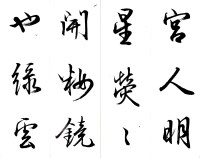 宮人明
星熒〻
開妝鏡
也綠雲